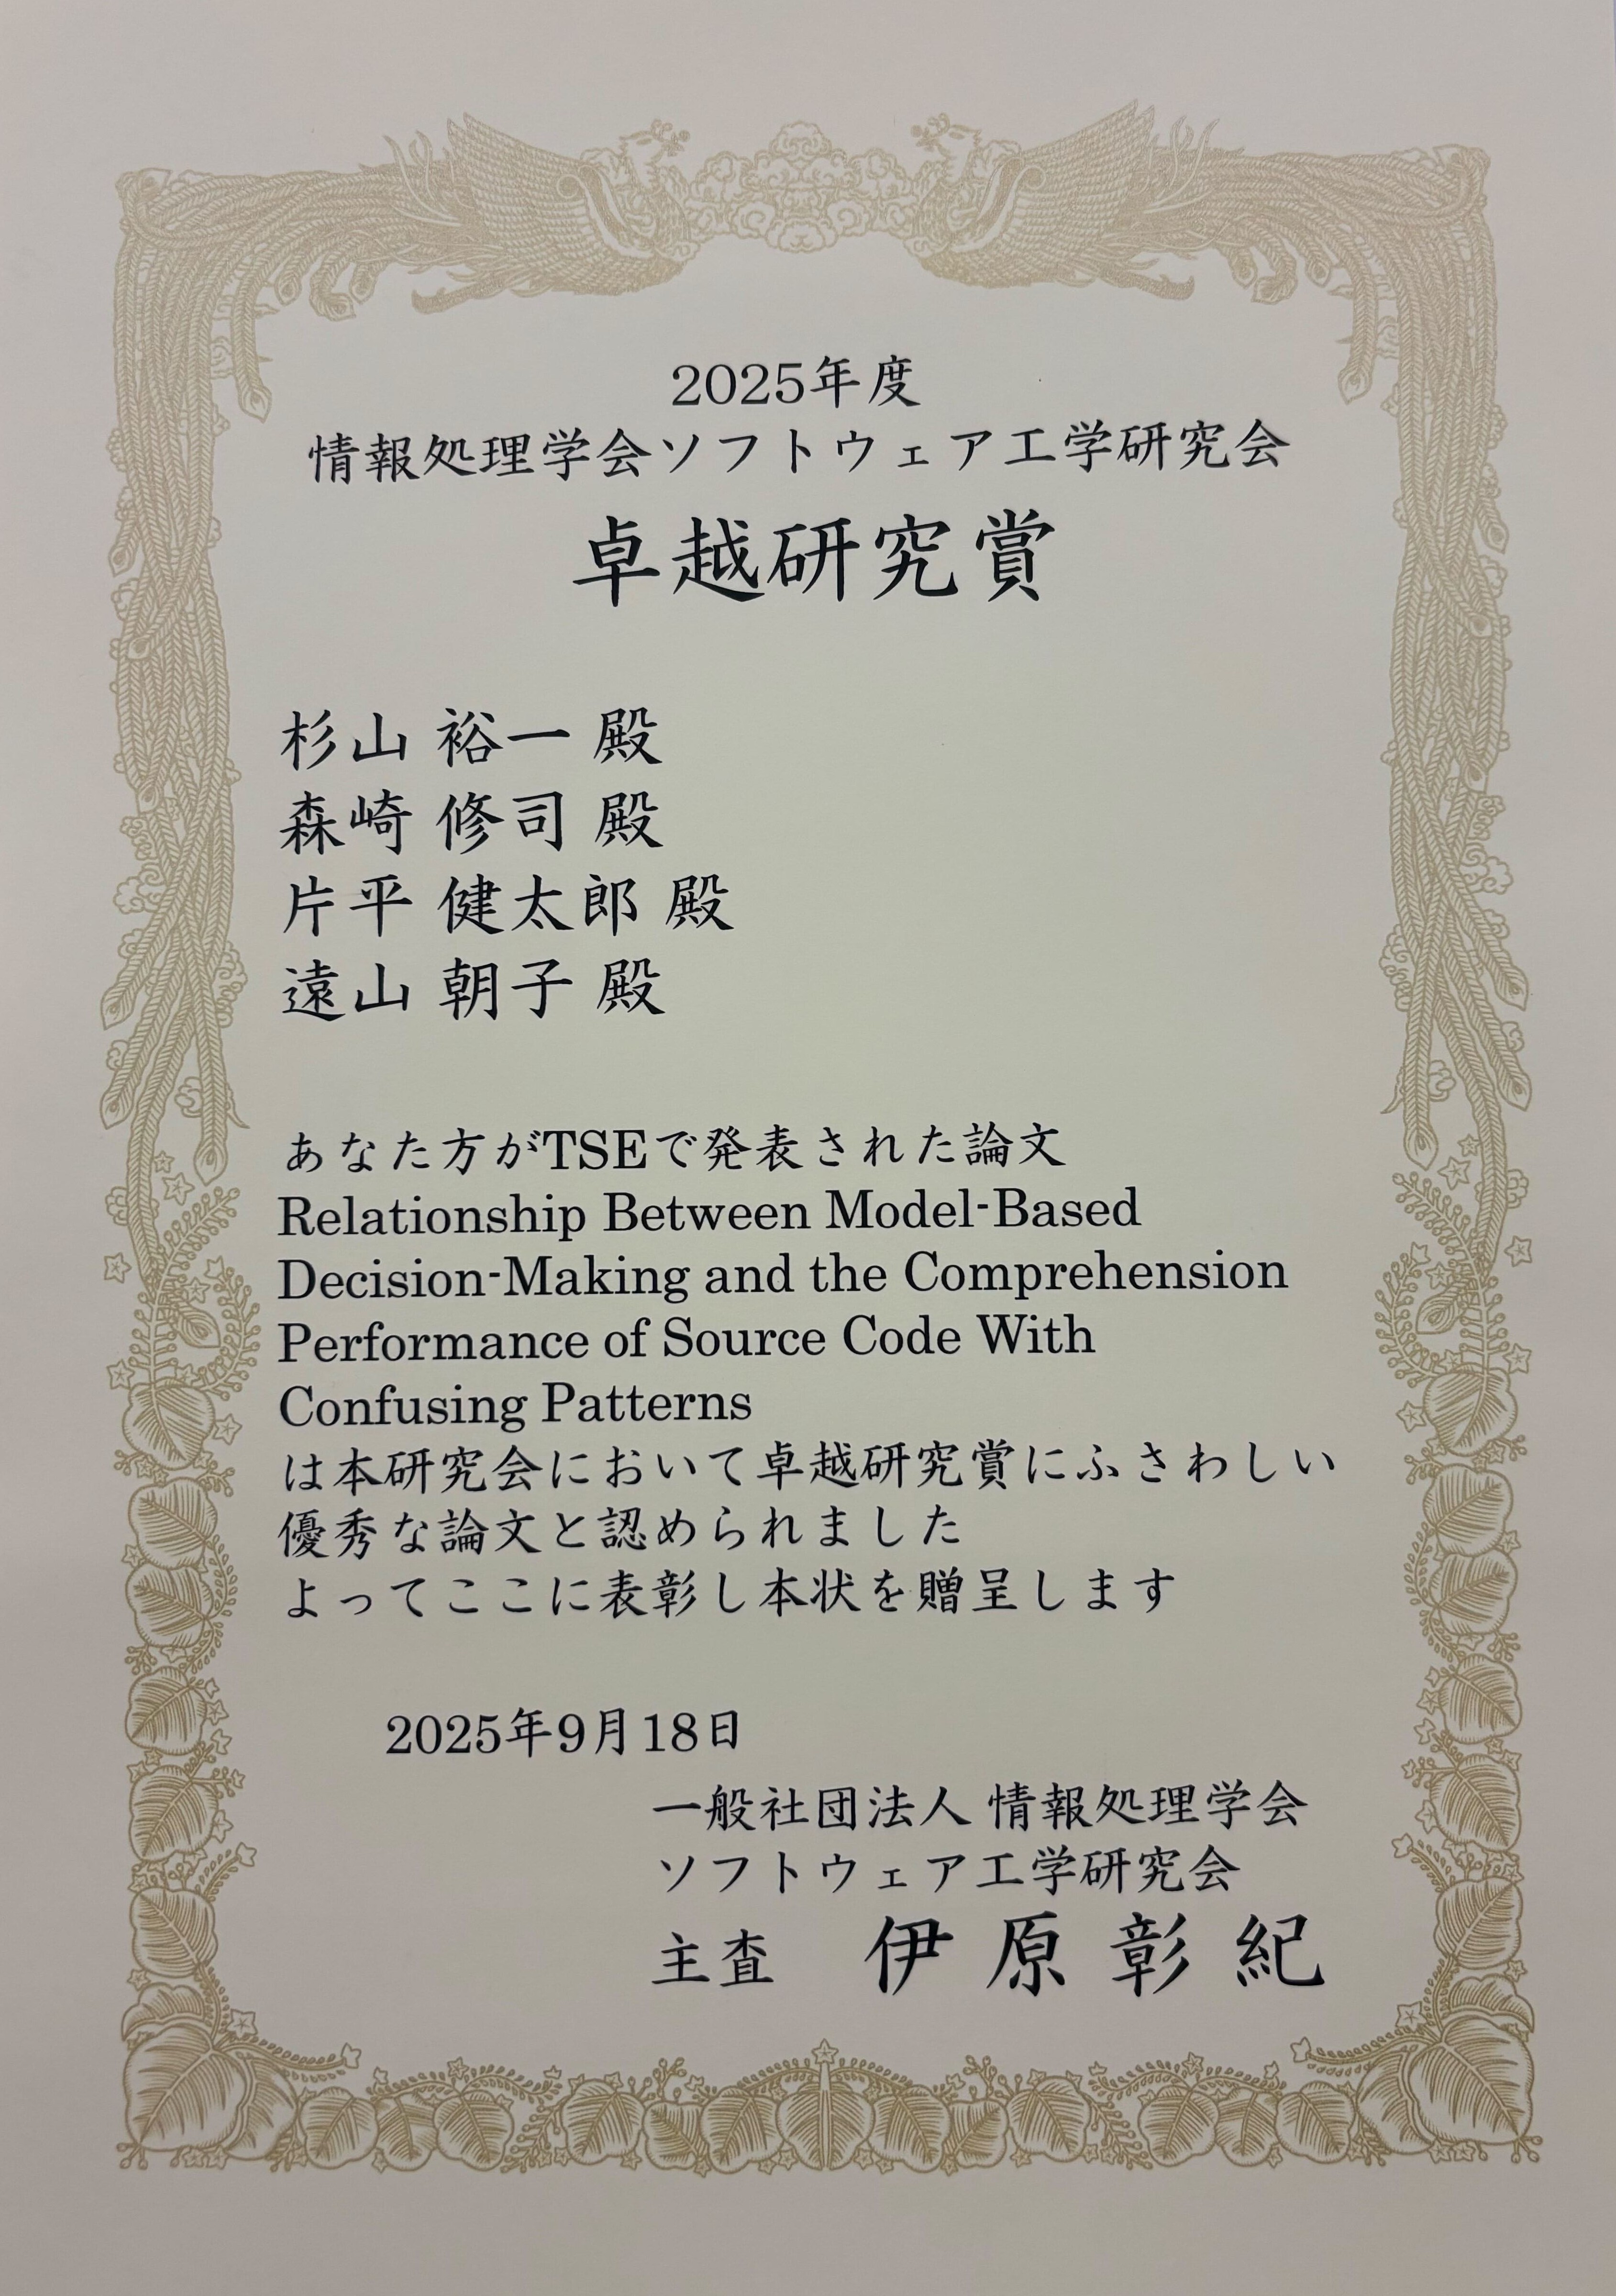 2025年度
情報処理学会ソフトウェア工学研究会
卓越研究賞
杉山 裕一 殿
森崎 修司 殿
片平 健太郎 殿
遠山 朝子 殿
あなた方がTSEで発表された論文
Relationship Between Model-Based
Decision-Making and the Comprehension
Performance of Source Code With
Confusing Patterns
は本研究会において卓越研究賞にふさわしい
優秀な論文と認められました
よってここに表彰し本状を贈呈します
2025年9月18日
一般社団法人 情報処理学会
ソフトウェア工学研究会
主査 伊原彰紀